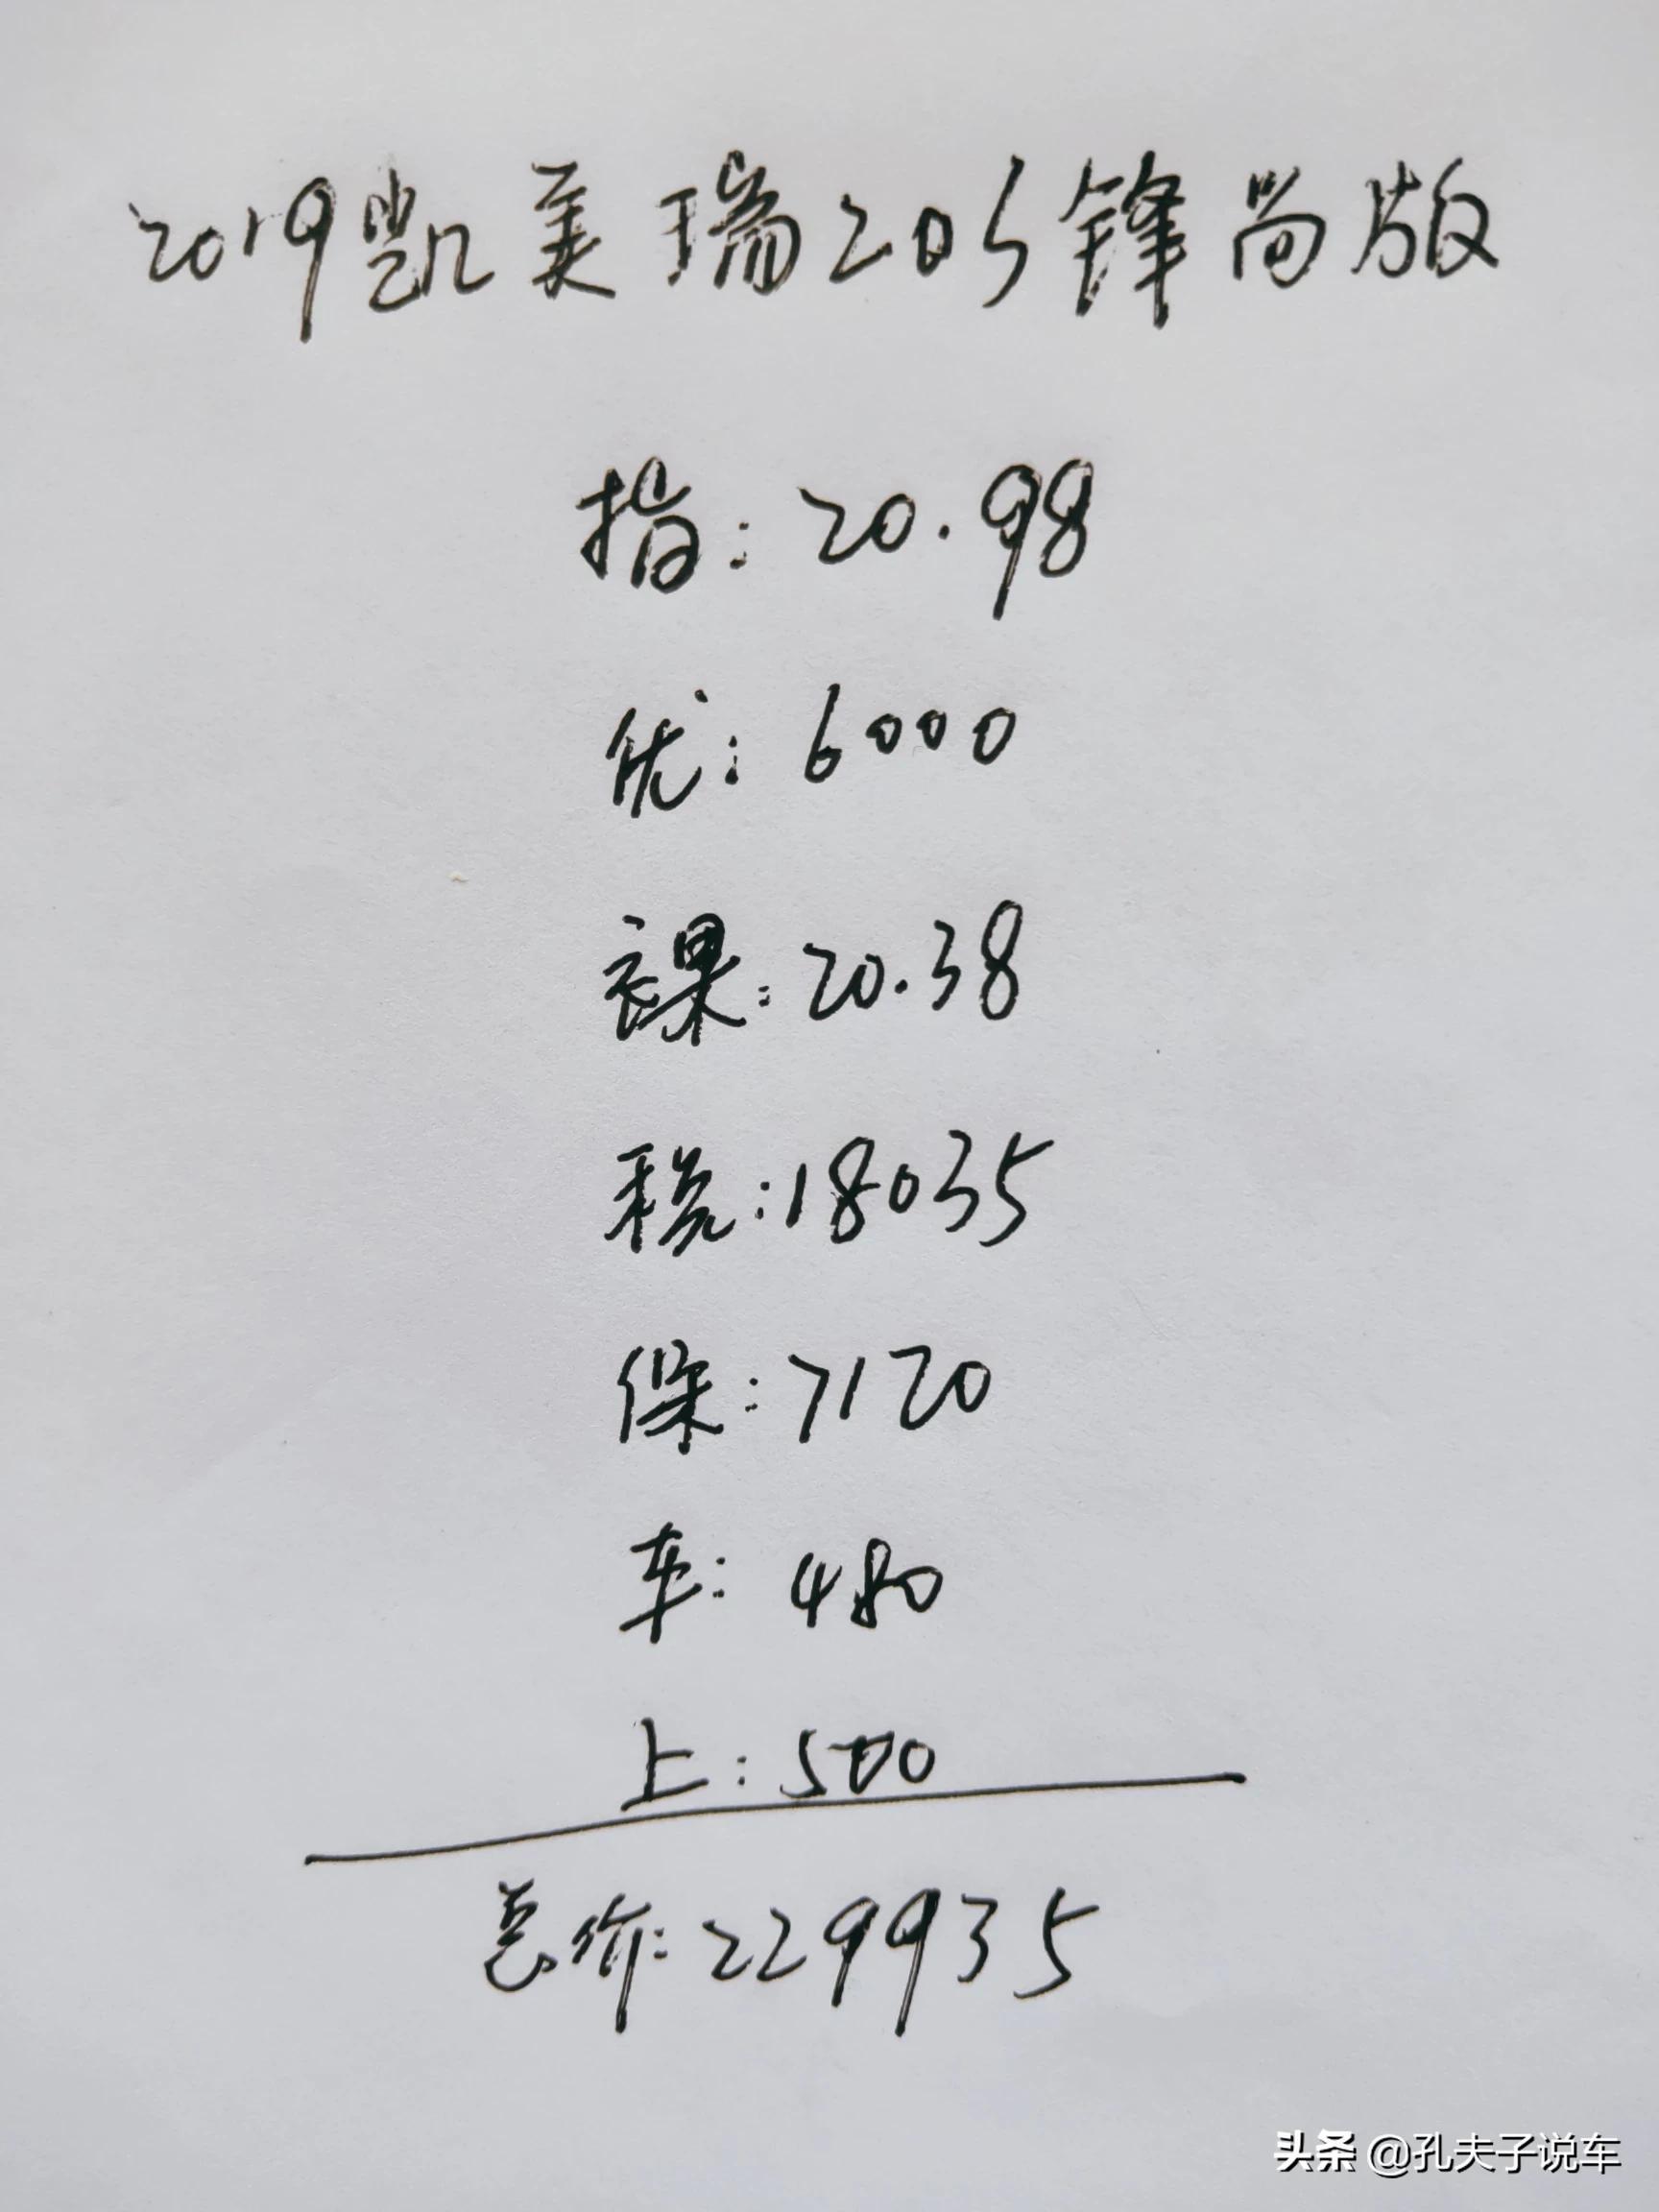 2019凯美瑞20S锋尚版
指:20.98
优:6000
裸:20.38
税:18035
保:7120
车:480
上:500
总价:229935
头条 @孔夫子说车